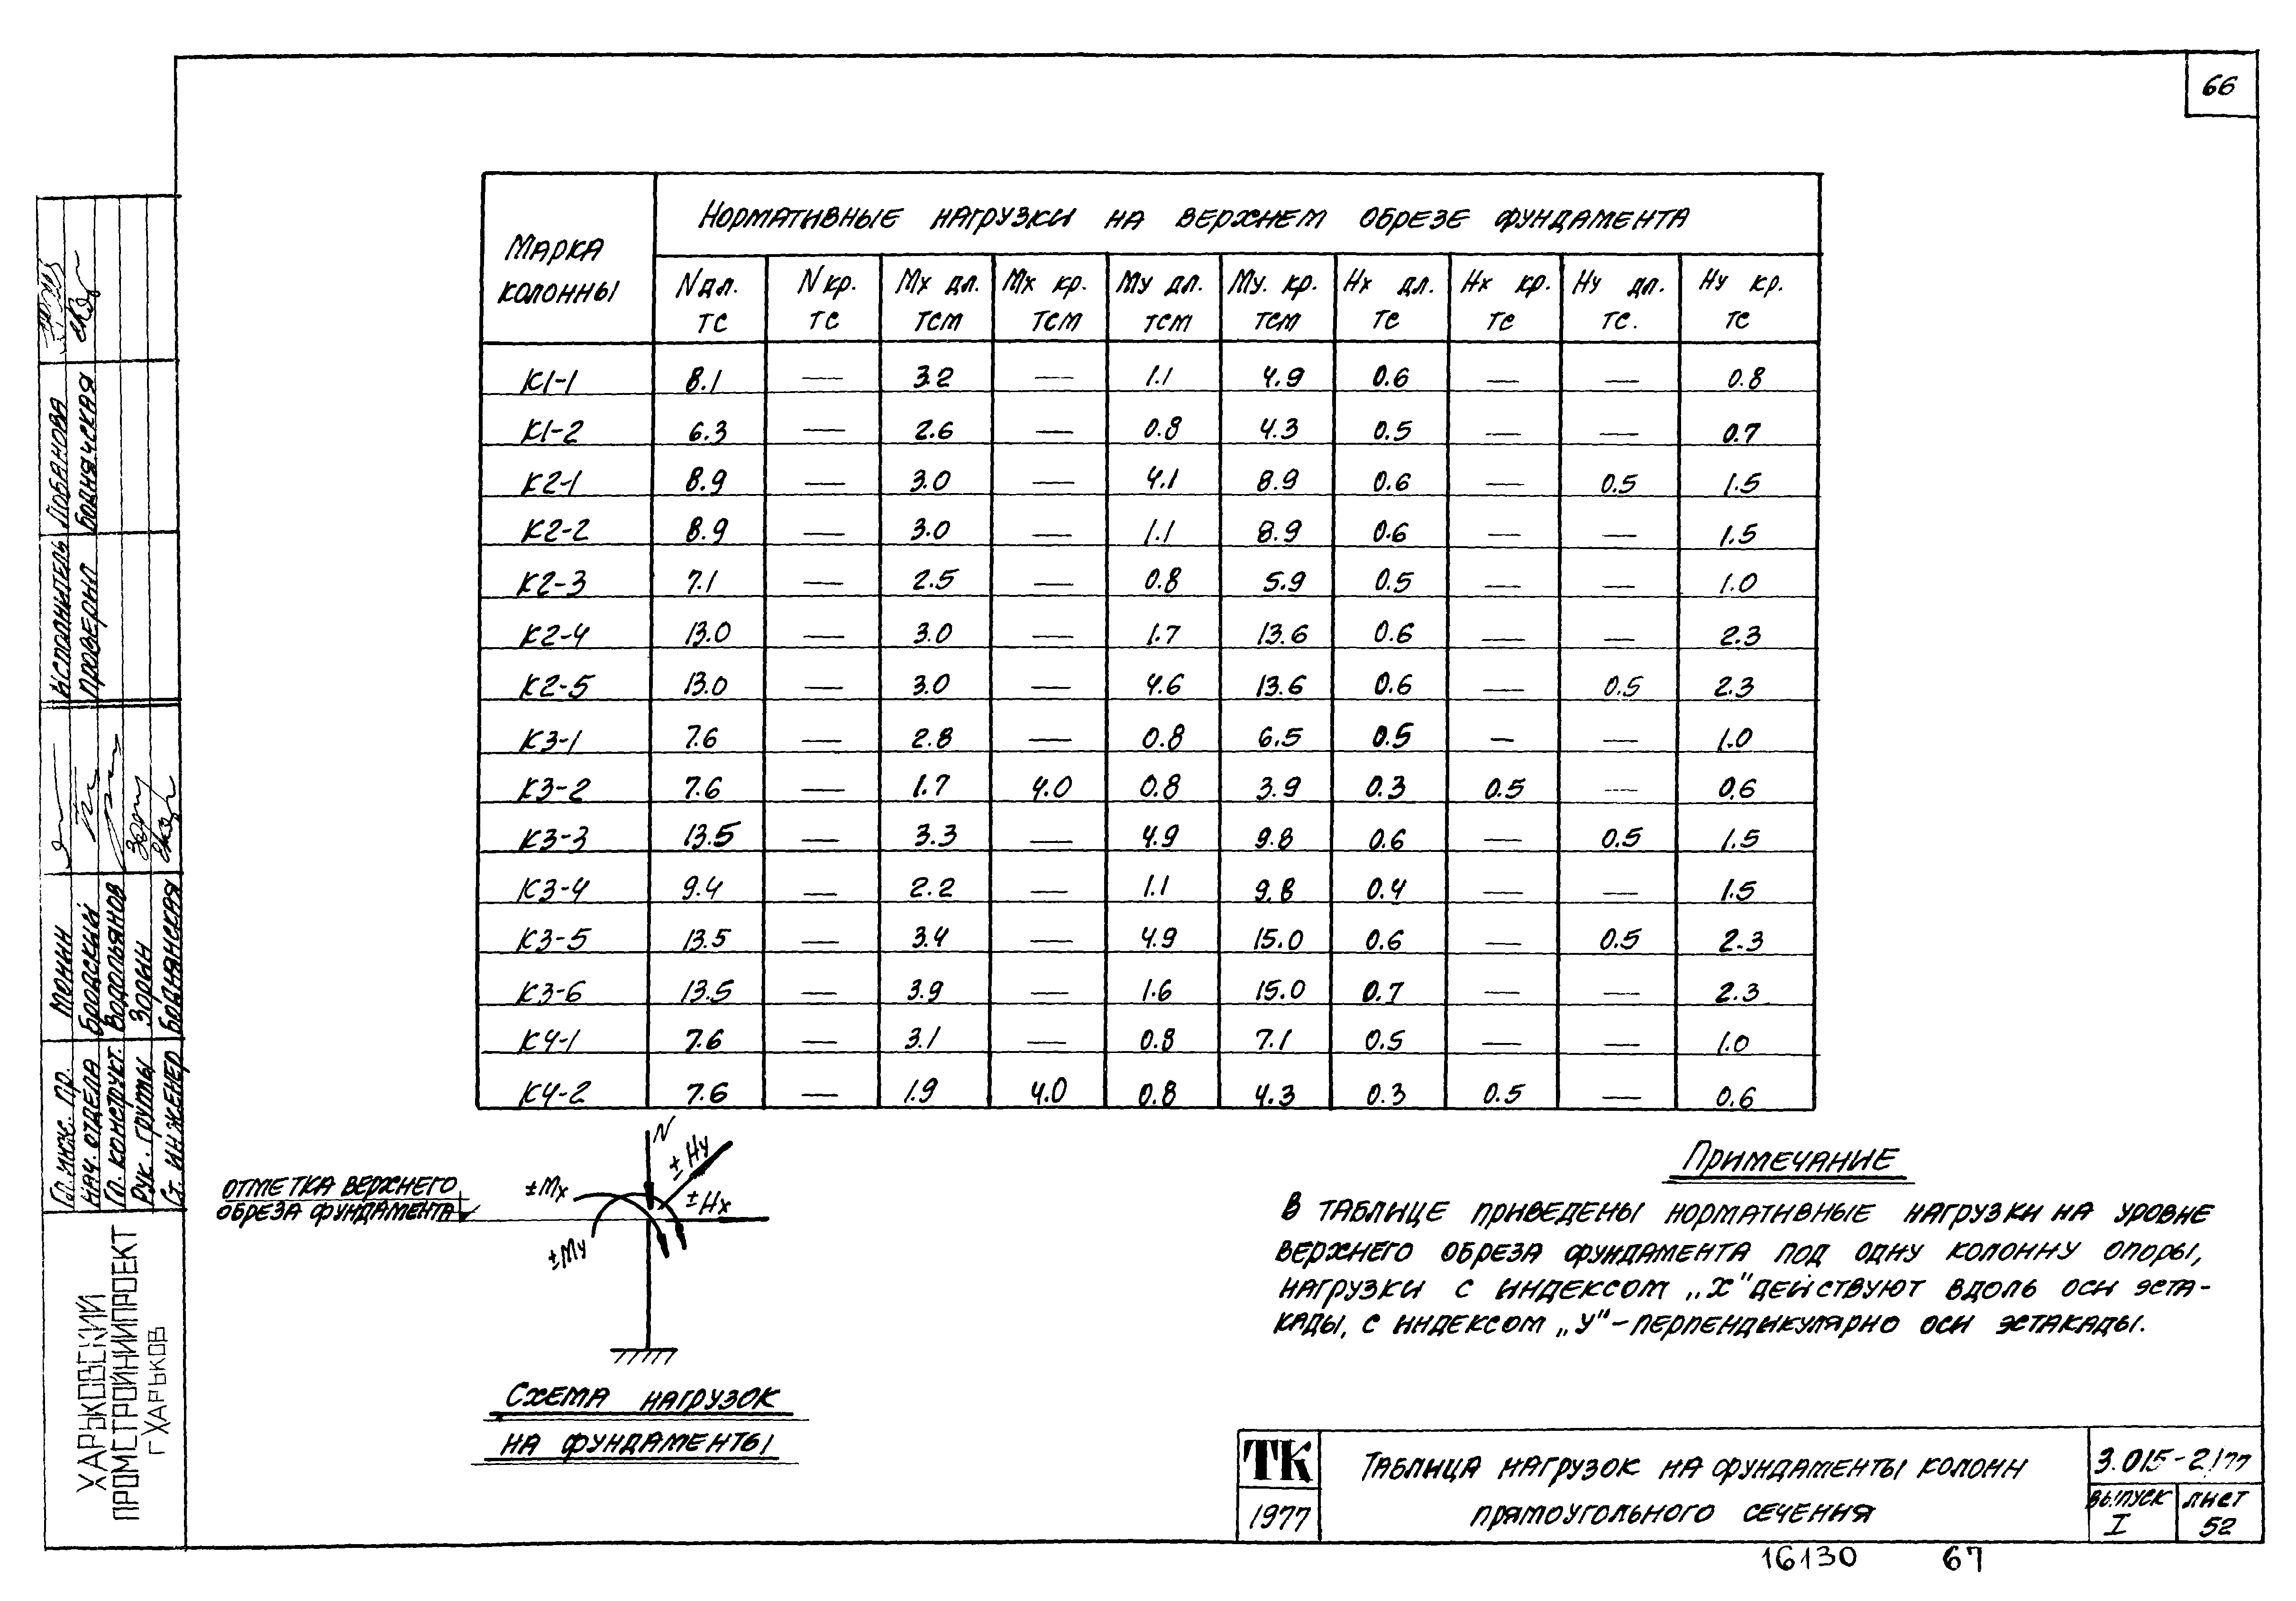 66
Марка колонны
Нормативные нагрузки на верхнем обрезе фундамента
N дл. тс | N кр. тс | Mx дл. тсм | Mx кр. тсм | My дл. тсм | My. кр. тсм | Hx дл. тс | Hx кр. тс | Hy дл. тс. | Hy кр. тс
К1-1 | 8.1 | — | 3.2 | — | 1.1 | 4.9 | 0.6 | — | — | 0.8
К1-2 | 6.3 | — | 2.6 | — | 0.8 | 4.3 | 0.5 | — | — | 0.7
К2-1 | 8.9 | — | 3.0 | — | 4.1 | 8.9 | 0.6 | — | 0.5 | 1.5
К2-2 | 8.9 | — | 3.0 | — | 1.1 | 8.9 | 0.6 | — | — | 1.5
К2-3 | 7.1 | — | 2.5 | — | 0.8 | 5.9 | 0.5 | — | — | 1.0
К2-4 | 13.0 | — | 3.0 | — | 1.7 | 13.6 | 0.6 | — | — | 2.3
К2-5 | 13.0 | — | 3.0 | — | 4.6 | 13.6 | 0.6 | — | 0.5 | 2.3
К3-1 | 7.6 | — | 2.8 | — | 0.8 | 6.5 | 0.5 | — | — | 1.0
К3-2 | 7.6 | — | 1.7 | 4.0 | 0.8 | 3.9 | 0.3 | 0.5 | — | 0.6
К3-3 | 13.5 | — | 3.3 | — | 4.9 | 9.8 | 0.6 | — | 0.5 | 1.5
К3-4 | 9.4 | — | 2.2 | — | 1.1 | 9.8 | 0.4 | — | — | 1.5
К3-5 | 13.5 | — | 3.4 | — | 4.9 | 15.0 | 0.6 | — | 0.5 | 2.3
К3-6 | 13.5 | — | 3.9 | — | 1.6 | 15.0 | 0.7 | — | — | 2.3
К4-1 | 7.6 | — | 3.1 | — | 0.8 | 7.1 | 0.5 | — | — | 1.0
К4-2 | 7.6 | — | 1.9 | 4.0 | 0.8 | 4.3 | 0.3 | 0.5 | — | 0.6
N
± Hy
± Mx
± Hx
± My
отметка верхнего
обреза фундамента
Схема нагрузок
на фундаменты
Примечание
В таблице приведены нормативные нагрузки на уровне
верхнего обреза фундамента под одну колонну опоры,
нагрузки с индексом „X" действуют вдоль оси эста-
кады, с индексом „У" – перпендикулярно оси эстакады.
ТК
1977
Таблица нагрузок на фундаменты колонн
прямоугольного сечения
3.015-2/77
выпуск I
лист 52
16130 67
исполнитель Лобанова
проверил
Гл. инж. пр. Монин
нач. отдела Бродский
Гл. конструкт. Водольянов
Рук. группы Зорин
Ст. инженер Боднянская
ХАРЬКОВСКИЙ
ПРОМСТРОЙНИИПРОЕКТ
г ХАРЬКОВ